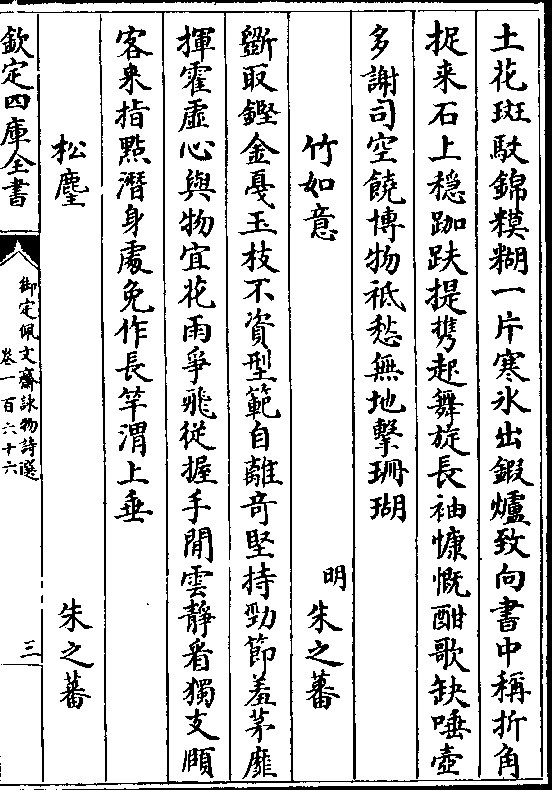 土花斑駮錦糢糊一片寒氷出鍜爐致向書中稱折角
捉来石上穏跏趺提携起舞旋長袖慷慨酣歌缺唾壺
多謝司空饒博物祗愁無地擊珊瑚
竹如意
明朱之蕃
斵取鏗金戞玉枝不資型範自離竒堅持勁節羞茅靡
揮霍虚心與物宜花雨爭飛從握手閒雲靜看獨支頤
客来指點潛身處免作長竿渭上垂
松麈
朱之蕃
欽定四庫全書
御定佩文齋詠物詩選
卷一百六十六
三